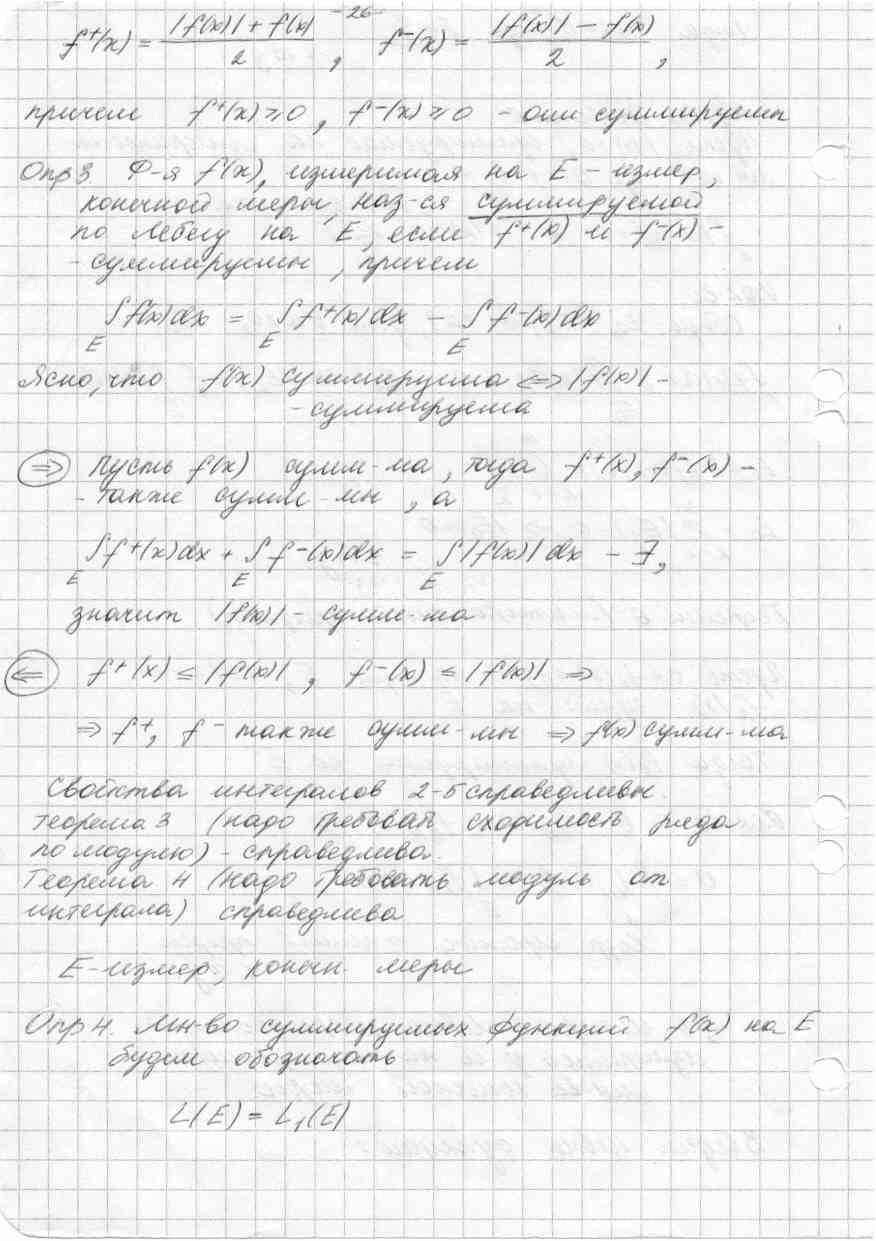 -26-
f⁺(x) = (|f(x)| + f(x))/2 , f⁻(x) = (|f(x)| − f(x))/2 ,
причем f⁺(x) ≥ 0, f⁻(x) ≥ 0 - они суммируемы
Опр 3. Ф-я f(x), измеримая на E - измер,
конечной меры, наз-ся суммируемой
по Лебегу на E, если f⁺(x) и f⁻(x) -
- суммируемы, причем
∫_E f(x)dx = ∫_E f⁺(x)dx − ∫_E f⁻(x)dx
Ясно, что f(x) суммируема ⟺ |f(x)| -
- суммируема
⇒ Пусть f(x) сумм-ма, тогда f⁺(x), f⁻(x) -
- также сумм-мы, а
∫_E f⁺(x)dx + ∫_E f⁻(x)dx = ∫_E |f(x)|dx - ∃,
значит |f(x)| - сумм-ма
⇐ f⁺(x) ≤ |f(x)|, f⁻(x) ≤ |f(x)| ⇒
⇒ f⁺, f⁻ также сумм-мы ⇒ f(x) сумм-ма
Свойства интегралов 2-5 справедливы.
Теорема 3 (надо требовать сходимость ряда
по модулю) - справедлива.
Теорема 4 (надо требовать модуль от
интеграла) справедлива
E - измер, конечн. меры
Опр 4. Мн-во суммируемых функций f(x) на E
будем обозначать
L(E) = L₁(E)